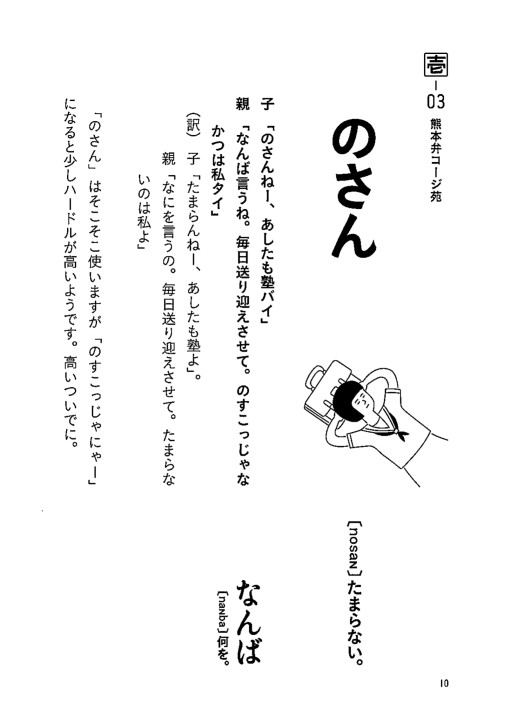 壱-03 熊本弁コージ苑
のさん
[nosaɴ]たまらない。
子 「のさんねー、あしたも塾バイ」
親 「なんば言うね。毎日送り迎えさせて。のすこっじゃな
かつは私タイ」
(訳) 子 「たまらんねー、あしたも塾よ」。
親 「なにを言うの。毎日送り迎えさせて。たまらな
いのは私よ」
なんば
[naɴba]何を。
「のさん」はそこそこ使いますが「のすこっじゃにゃー」
になると少しハードルが高いようです。高いついでに。
10